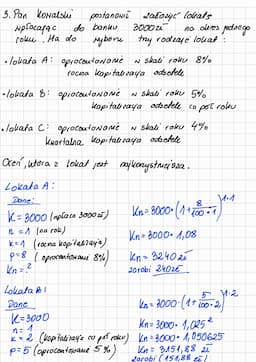 3. Pan Kowalski postanowił założyć lokatę
wpłacając do banku 3000zł na okres jednego
roku. Ma do wyboru trzy rodzaje lokat:
• lokata A: oprocentowanie w skali roku 8%
roczna kapitalizacja odsetek
• lokata B: oprocentowanie w skali roku 5%
kapitalizacja odsetek co pół roku
• lokata C: oprocentowanie w skali roku 4%
kwartalna kapitalizacja odsetek
Oceń, która z lokat jest najkorzystniejsza.
Lokata A:
Dane:
K = 3000 (wpłaca 3000zł)
n = 1 (na rok)
k = 1 (roczna kapitalizacja)
p = 8 (oprocentowanie 8%)
Kn = ?
Kn = 3000 · (1 + 8/100·1)^1·1
Kn = 3000 · 1,08
Kn = 3240 zł
zarobi 240zł
Lokata B:
Dane
K = 3000
n = 1
k = 2 (kapitalizacja co pół roku)
p = 5 (oprocentowanie 5%)
Kn = 3000 · (1 + 5/100·2)^1·2
Kn = 3000 · 1,025²
Kn = 3000 · 1,050625
Kn = 3151,88 zł
zarobi (151,88 zł)